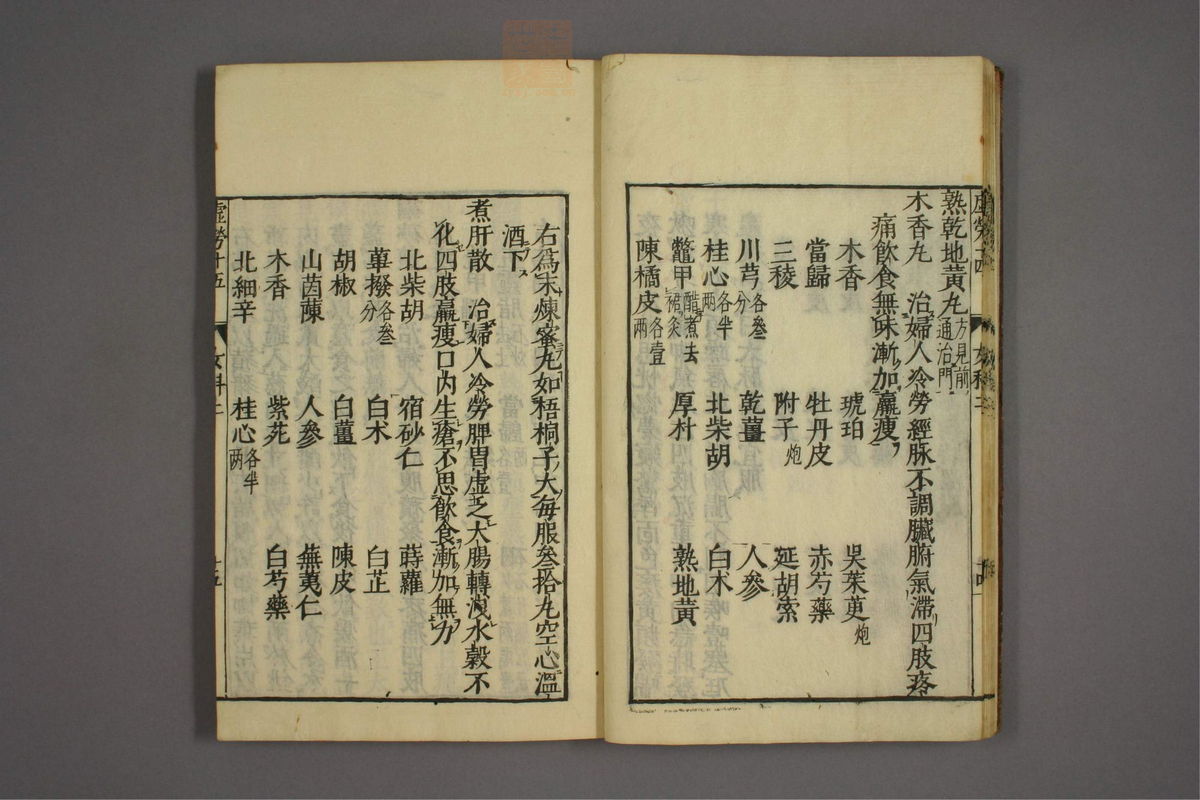 熟乾地黃丸方見前通治門
木香丸 治婦人冷勞經脉不調臟腑氣滯四肢疼
痛飲食無味漸加羸瘦
木香 琥珀 吳茱萸炮
當歸 牡丹皮 赤芍藥
三稜 附子炮 延胡索
川芎各叄分 乾薑 人參
桂心各半兩 北柴胡 白术
鼈甲醋煮去裙炙 厚朴 熟地黃
陳橘皮各壹兩
右爲末煉蜜丸如梧桐子大每服叄拾丸空心溫
酒下
煮肝散 治婦人冷勞脾胃虛乏大腸轉洩水穀不
化四肢羸瘦口内生瘡不思飲食漸加無力
北柴胡 宿砂仁 蒔蘿
蓽撥各叄分 白术 白芷
胡椒 白薑 陳皮
山茵蔯 人參 蕪荑仁
木香 紫菀 白芍藥
北細辛 桂心各半兩
虛勞十五 女科二 十五